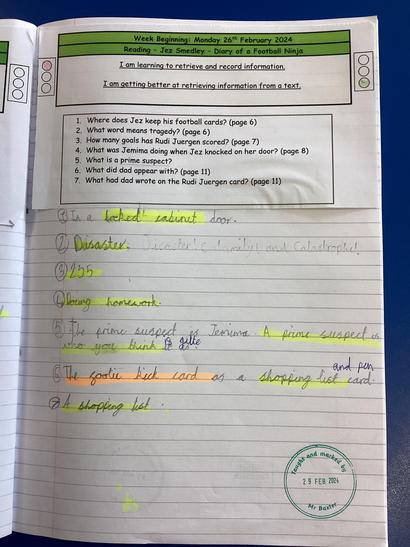 Week Beginning: Monday 26th February 2024
Reading - Jez Smedley - Diary of a Football Ninja
I am learning to retrieve and record information.
I am getting better at retrieving information from a text.
1. Where does Jez keep his football cards? (page 6)
2. What word means tragedy? (page 6)
3. How many goals has Rudi Juergen scored? (page 7)
4. What was Jemima doing when Jez knocked on her door? (page 8)
5. What is a prime suspect?
6. What did dad appear with? (page 11)
7. What had dad wrote on the Rudi Juergen card? (page 11)
① In a locked cabinet door.
② Disaster. Disaster! Calamity! and Catastrophe!
③ 255
④ Doing homework.
5 The prime suspect is Jemima. A prime suspect is
who you think
and pen
⑥ The kick card as a shopping list card.
⑦ A shopping list.
Taught and marked by
29 FEB 2024
Mr Baxter